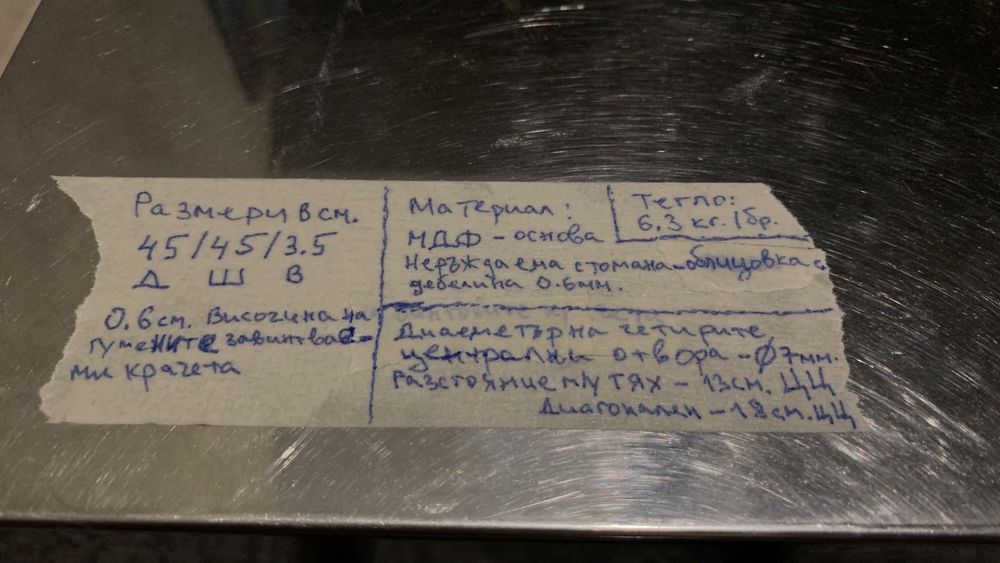 Размери в см.
45/45/3.5
Д Ш В
0.6 см. височина на
гумените завинтвае-
ми крачета
Материал:
МДФ - основа
Неръждаема стомана-облицовка с
дебелина 0.6мм.
Тегло:
6,3 кг./бр.
Диаметър на четирите
централни отвора - Ø7мм.
Разстояние м/у тях - 13см. ЦЦ
Диагонален - 18см. ЦЦ